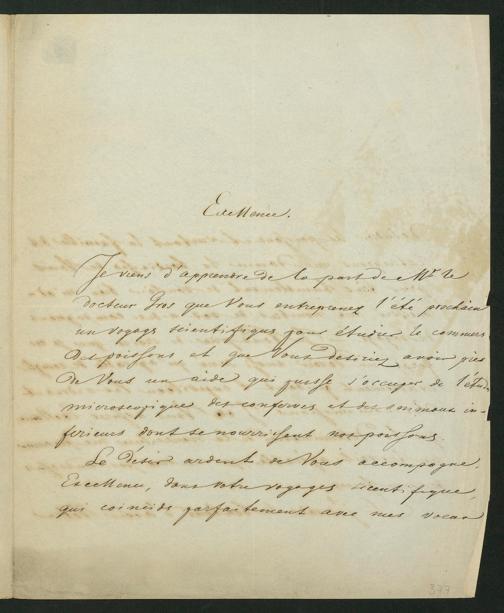 Excellence.
Je viens d'apprendre de la part de Mr le
docteur Gros que Vous entreprenez l'été prochain
un voyage scientifique pour étudier le commerce
des poissons et que Vous desiriez avoir près
de Vous un aide qui puisse s'occuper de l'étude
microscopique des conferves et des animaux in-
ferieurs dont se nourrissent nos poissons.
Le désir ardent de Vous accompagner,
Excellence, dans votre voyage scientifique,
qui coincide parfaitement avec mes
377